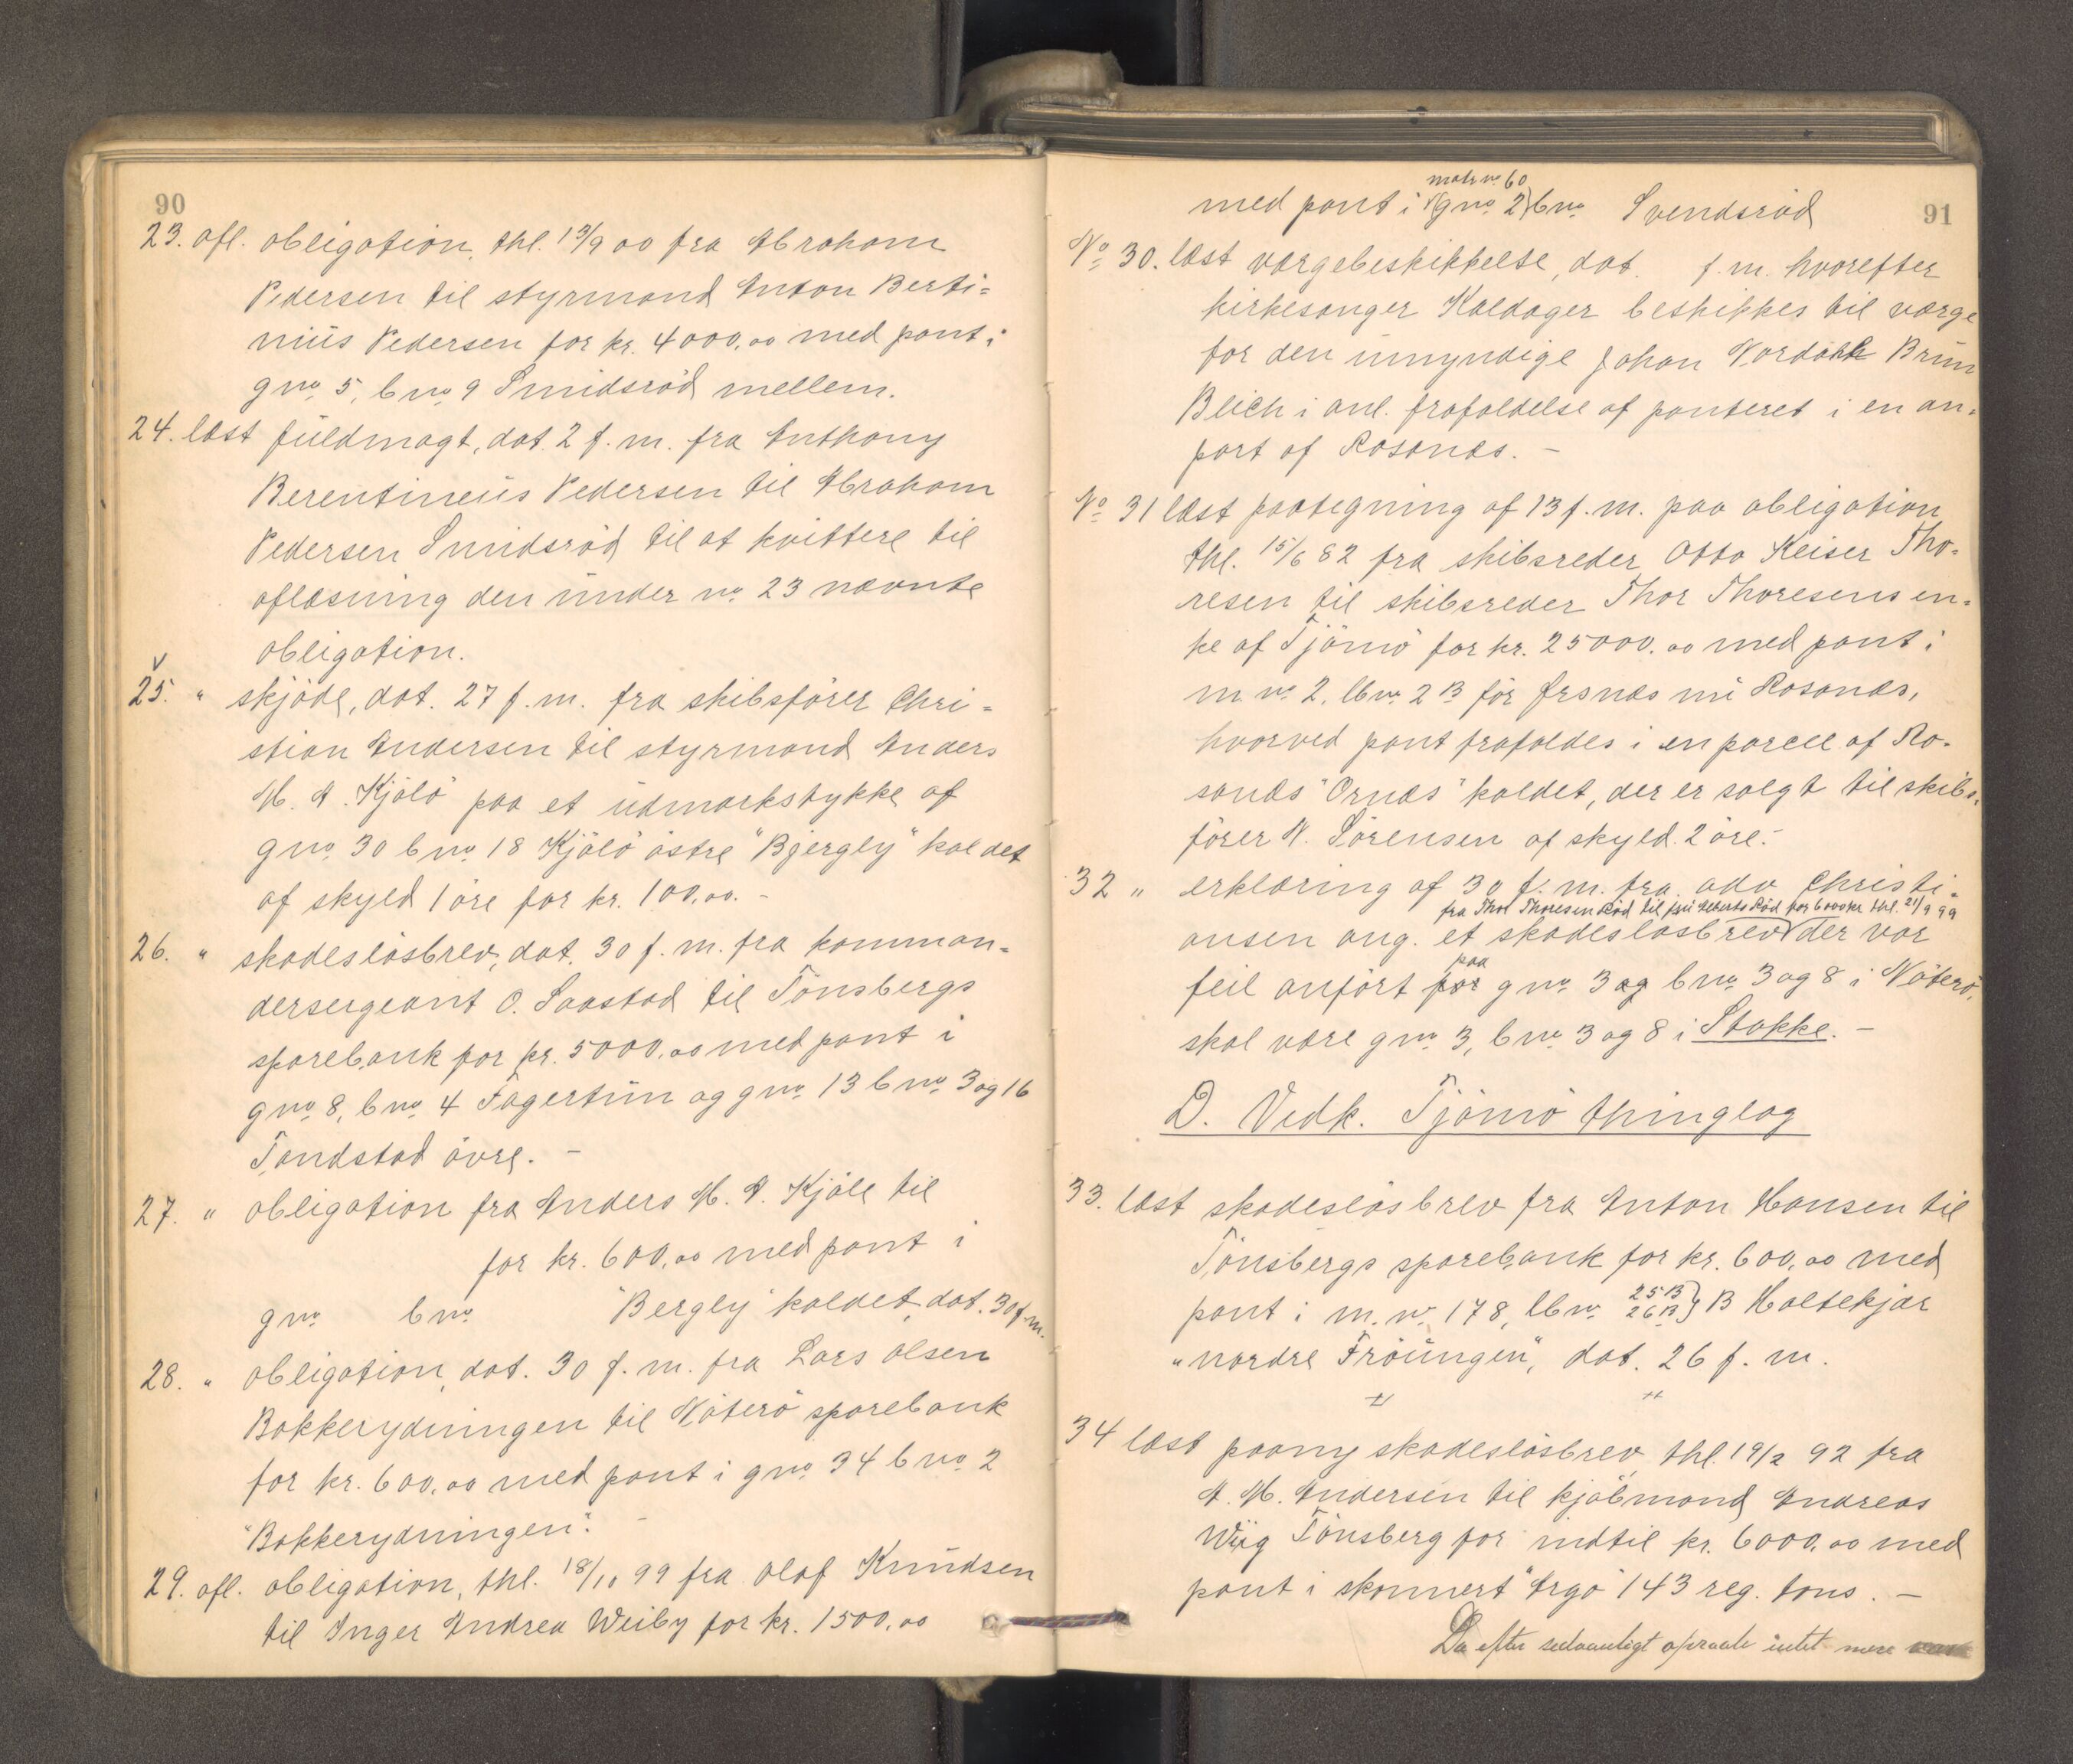 90
23. afl. obligation, thl. 13/9 00 fra Abraham
Pedersen til styrmand Anton Berti-
nius Pedersen for kr. 4000,00 med pant i
gno 5, bno 9 Smidsröd mellem.
24. læst fuldmagt, dat. 2 f. m. fra Anthony
Berentineus Pedersen til Abraham
Pedersen Smidsröd til at kvittere til
aflæsning den under no 23 nævnte
obligation.
25. " skjöde, dat. 27 f. m. fra skibsförer Chri-
stian Andersen til styrmand Anders
M. A. Kjölö paa et udmarkstykke af
gno 30 bno 18 Kjölö östre "Bjergly" kaldet
af skyld 1 öre for kr. 100,00. -
26. " skadeslösbrev, dat. 30 f. m. fra komman-
dersergeant O. Saastad til Tönsbergs
sparebank for kr. 5000,00 med pant i
gno 8, bno 4 Fagertun og gno 13 bno 3 og 16
Tandstad övre. -
27. " obligation fra Anders M. A. Kjöle til
for kr. 600,00 med pant i
gno bno "Bergly" kaldet, dat. 30 f. m.
28. " obligation, dat. 30 f. m. fra Lars Olsen
Bakkerydningen til Nöterö sparebank
for kr. 600,00 med pant i gno 34 bno 2
"Bakkerydningen". -
29. afl. obligation, thl. 18/10 99 fra Olaf Knudsen
til Inger Andrea Weiby for kr. 1500,00
91
matr no 60
med pant i (gno 2) bno Svendsröd
No 30. læst værgebeskikkelse, dat. f. m. hvorefter
kirkesanger Kaldager beskikkes til værge
for den umyndige Johan Nordahl Brun
Bleich i anl. frafaldelse af panteret i en an-
part af Rosanes. -
No 31 læst paategning af 13 f. m. paa obligation
thl. 15/6 82 fra skibsreder Otto Keiser Tho-
resen til skibsreder Thor Thoresens en-
ke af Tjömö for kr. 25000,00 med pant i
m. no 2, lbno 2 B för Arsnæs nu Rosanes,
hvorved pant frafaldes i en parcel af Ro-
sanes "Ornæs" kaldet, der er solgt til skibs-
förer N. Sörensen af skyld 2 öre. -
32 " erklæring af 30 f. m. fra adv. Christi-
fra Thor Thoresen Röd til for 6000 kr thl. 21/9 99
ansen ang. et skadeslösbrev der var
paa
feil anfört for gno 3 og bno 3 og 8 i Nöterö,
skal være gno 3, bno 3 og 8 i Stokke. -
D. Vedk. Tjömö thinglag
33. læst skadeslösbrev fra Anton Hansen til
Tönsbergs sparebank for kr. 600,00 med
pant i m. no 178, lbno 25 B 26 B } B Holtekjær
"nordre Fröungen", dat. 26 f. m.
34 læst paany skadeslösbrev, thl. 19/2 92 fra
A. M. Andersen til kjöbmand Andreas
Wiig Tönsberg for indtil kr. 6000,00 med
pant i skonnert "Argo" 143 reg. tons. -
Da efter sedvanligt opraab intet mere